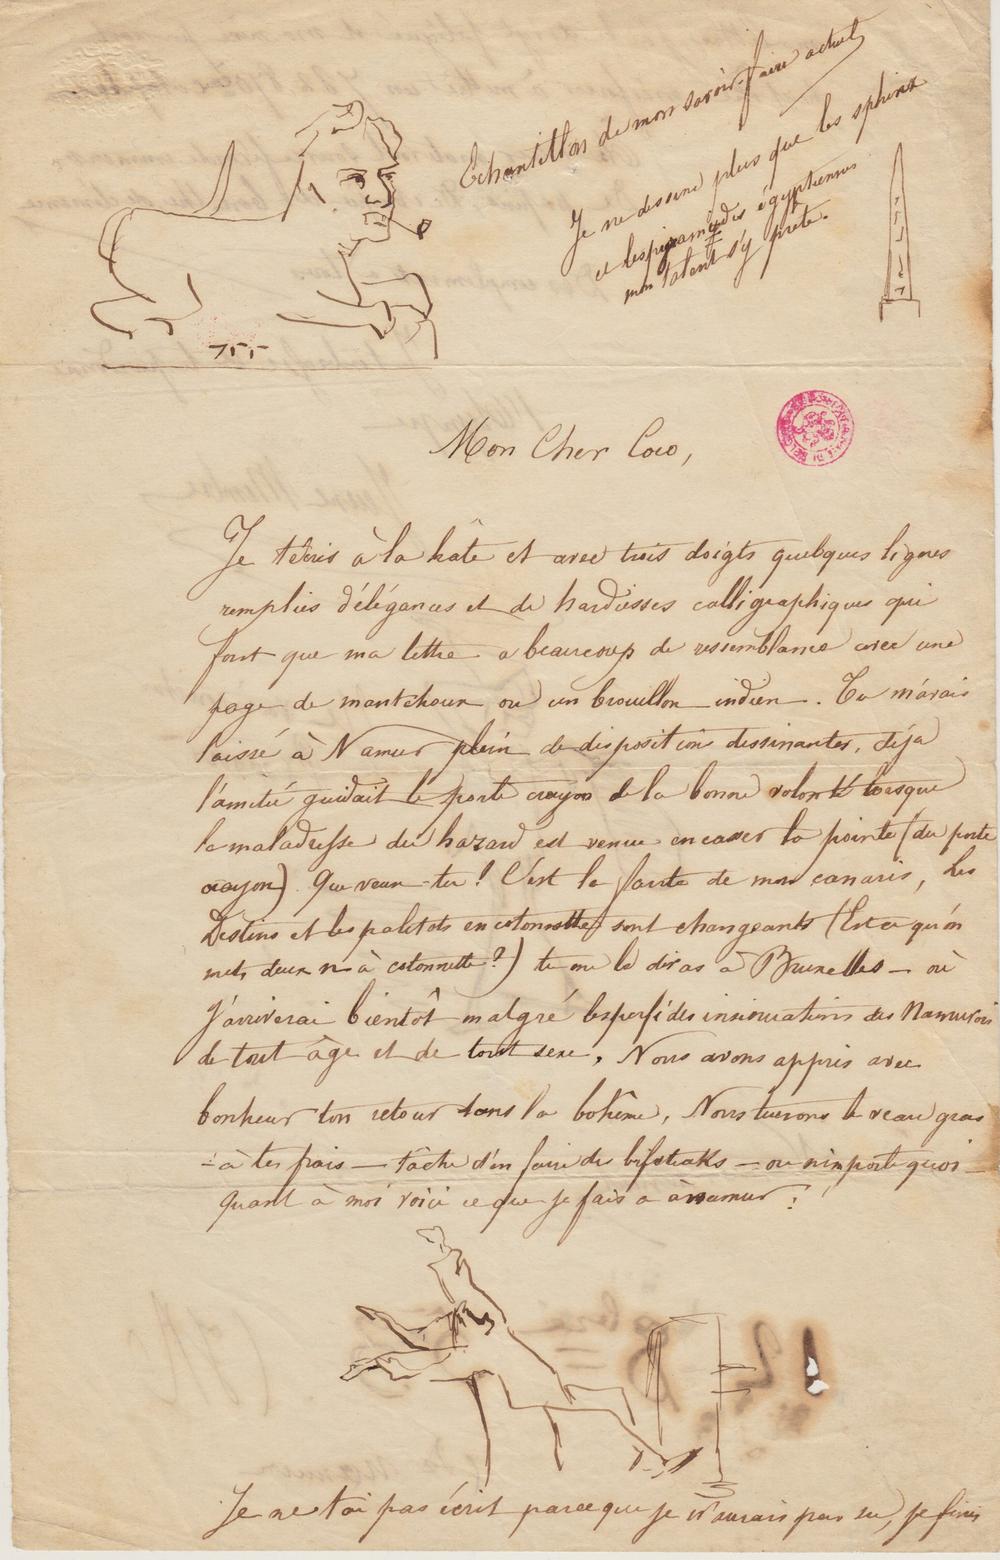 Echantillon de mon savoir-faire actuel
Je ne dessine plus que les sphinx
et les pyramydes égyptiennes
mon talent s'y prête.
Mon Cher Coco,
Je t'écris à la hâte et avec trois doigts quelques lignes
remplies d'élégances et de hardiesses calligraphiques qui
font que ma lettre a beaucoup de ressemblance avec une
page de mantchoux ou un brouillon indien. Tu m'avais
laissé à Namur plein de dispositions dessinantes, déja
l'amitié guidait le porte crayon de la bonne volonté lorsque
la maladresse du hazard est venue en casser la pointe (du porte
crayon). Que veux-tu! C'est la faute de mon canaris, Les
Destins et les paletots en cotonnette sont changeants (Est ce qu'on
mets deux n à cotonnette?) tu me le diras à Bruxelles — où
J'arriverai bientôt malgré les perfides insinuations des Namurois
de tout âge et de tout sexe. Nous avons appris avec
bonheur ton retour dans la bohême, Nous tuerons le veau gras
— à tes frais — tâche d'en faire des bifsteaks — ou n'importe quoi —
Quant à moi voici ce que je fais a à namur :
Je ne t'ai pas écrit parceque je n'aurais pas su, je finis